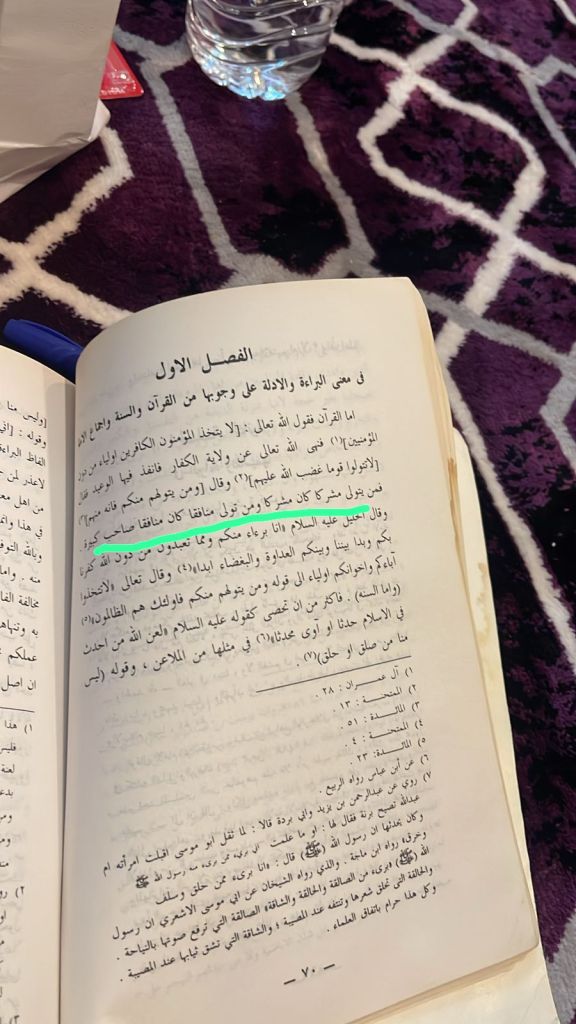 الفصل الاول
في معنى البراءة والادلة على وجوبها من القرآن والسنة واجماع
اما القرآن فقول الله تعالى : [لا يتخذ المؤمنون الكافرين اولياء من دون
المؤمنين](١) فنهى الله تعالى عن ولاية الكفار فانفذ فيها الوعيد فقال
[لاتتولوا قوما غضب الله عليهم](٢) وقال [ومن يتولهم منكم فانه منهم](٣)
فمن يتولى مشركا كان مشركا ومن تولى منافقا كان منافقا صاحب كبيرة .
وقال الخليل عليه السلام «انا برءاء منكم ومما تعبدون من دون الله كفرنا
بكم وبدا بيننا وبينكم العداوة والبغضاء ابدا»(٤) وقال تعالى «لاتتخذوا
آباءكم واخوانكم اولياء الى قوله ومن يتولهم منكم فاولئك هم الظالمون»(٥)
(واما السنه) . فاكثر من ان تحصى كقوله عليه السلام «لعن الله من احدث
في الاسلام حدثا او آوى محدثا»(٦) في مثلها من الملاعن ، وقوله (ليس
منا من صلق او حلق)(٧) .
١) آل عمران : ٢٨ .
٢) الممتحنة : ١٣ .
٣) المائدة : ٥١ .
٤) الممتحنة : ٤ .
٥) المائدة : ٢٣ .
٦) عن ابن عباس رواه الربيع .
٧) روي عن عبدالرحمن بن يزيد وابي بردة قالا : لما ثقل ابو موسى اقبلت امرأته ام
عبدالله تصيح برنة فقال لها : او ما علمت اني بريء ممن بريء منه رسول الله ﷺ
وكان يحدثها ان رسول الله (ﷺ) قال : «انا بريء ممن حلق وسلق
وخرق» رواه ابن ماجة . والذي رواه الشيخان عن ابي موسى الاشعري ان رسول
الله (ﷺ) «بريء من الصالقة والحالقة والشاقة» الصالقة التي ترفع صوتها بالنياحة .
والحالقة التي تحلق شعرها وتنتفه عند المصيبة ؛ والشاقة التي تشق ثيابها عند المصيبة .
وكل هذا حرام باتفاق العلماء .
— ٧٠ —